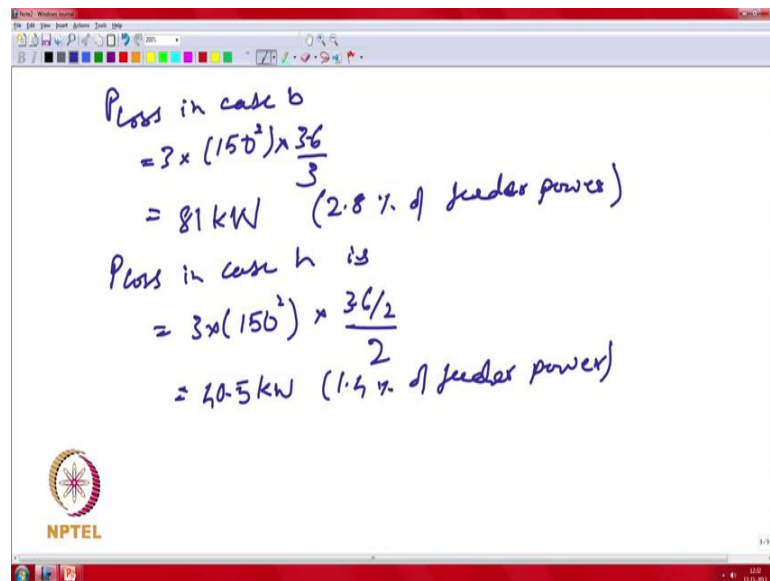 Note2 - Windows Journal
File Edit View Insert Actions Tools Help
200%
B I
Ploss in case b
= 3 x (150²) x 3.6
3
= 81 kW (2.8 % of feeder power)
Ploss in case h is
= 3x(150²) x 3.6/2
2
= 40.5 kW (1.4 % of feeder power)
NPTEL
9/9
12:32